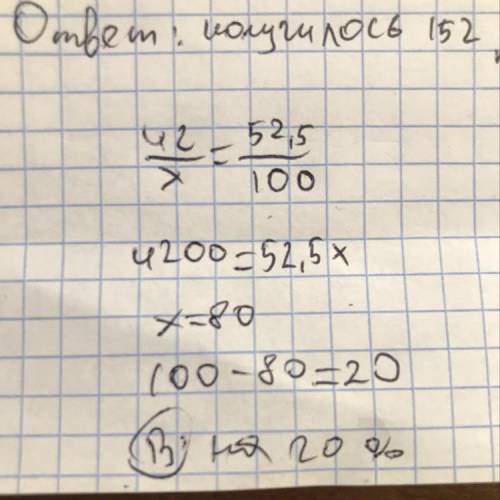 Ответ: получилось 152
42/x = 52,5/100
4200=52,5x
x=80
100-80=20
В: на 20%